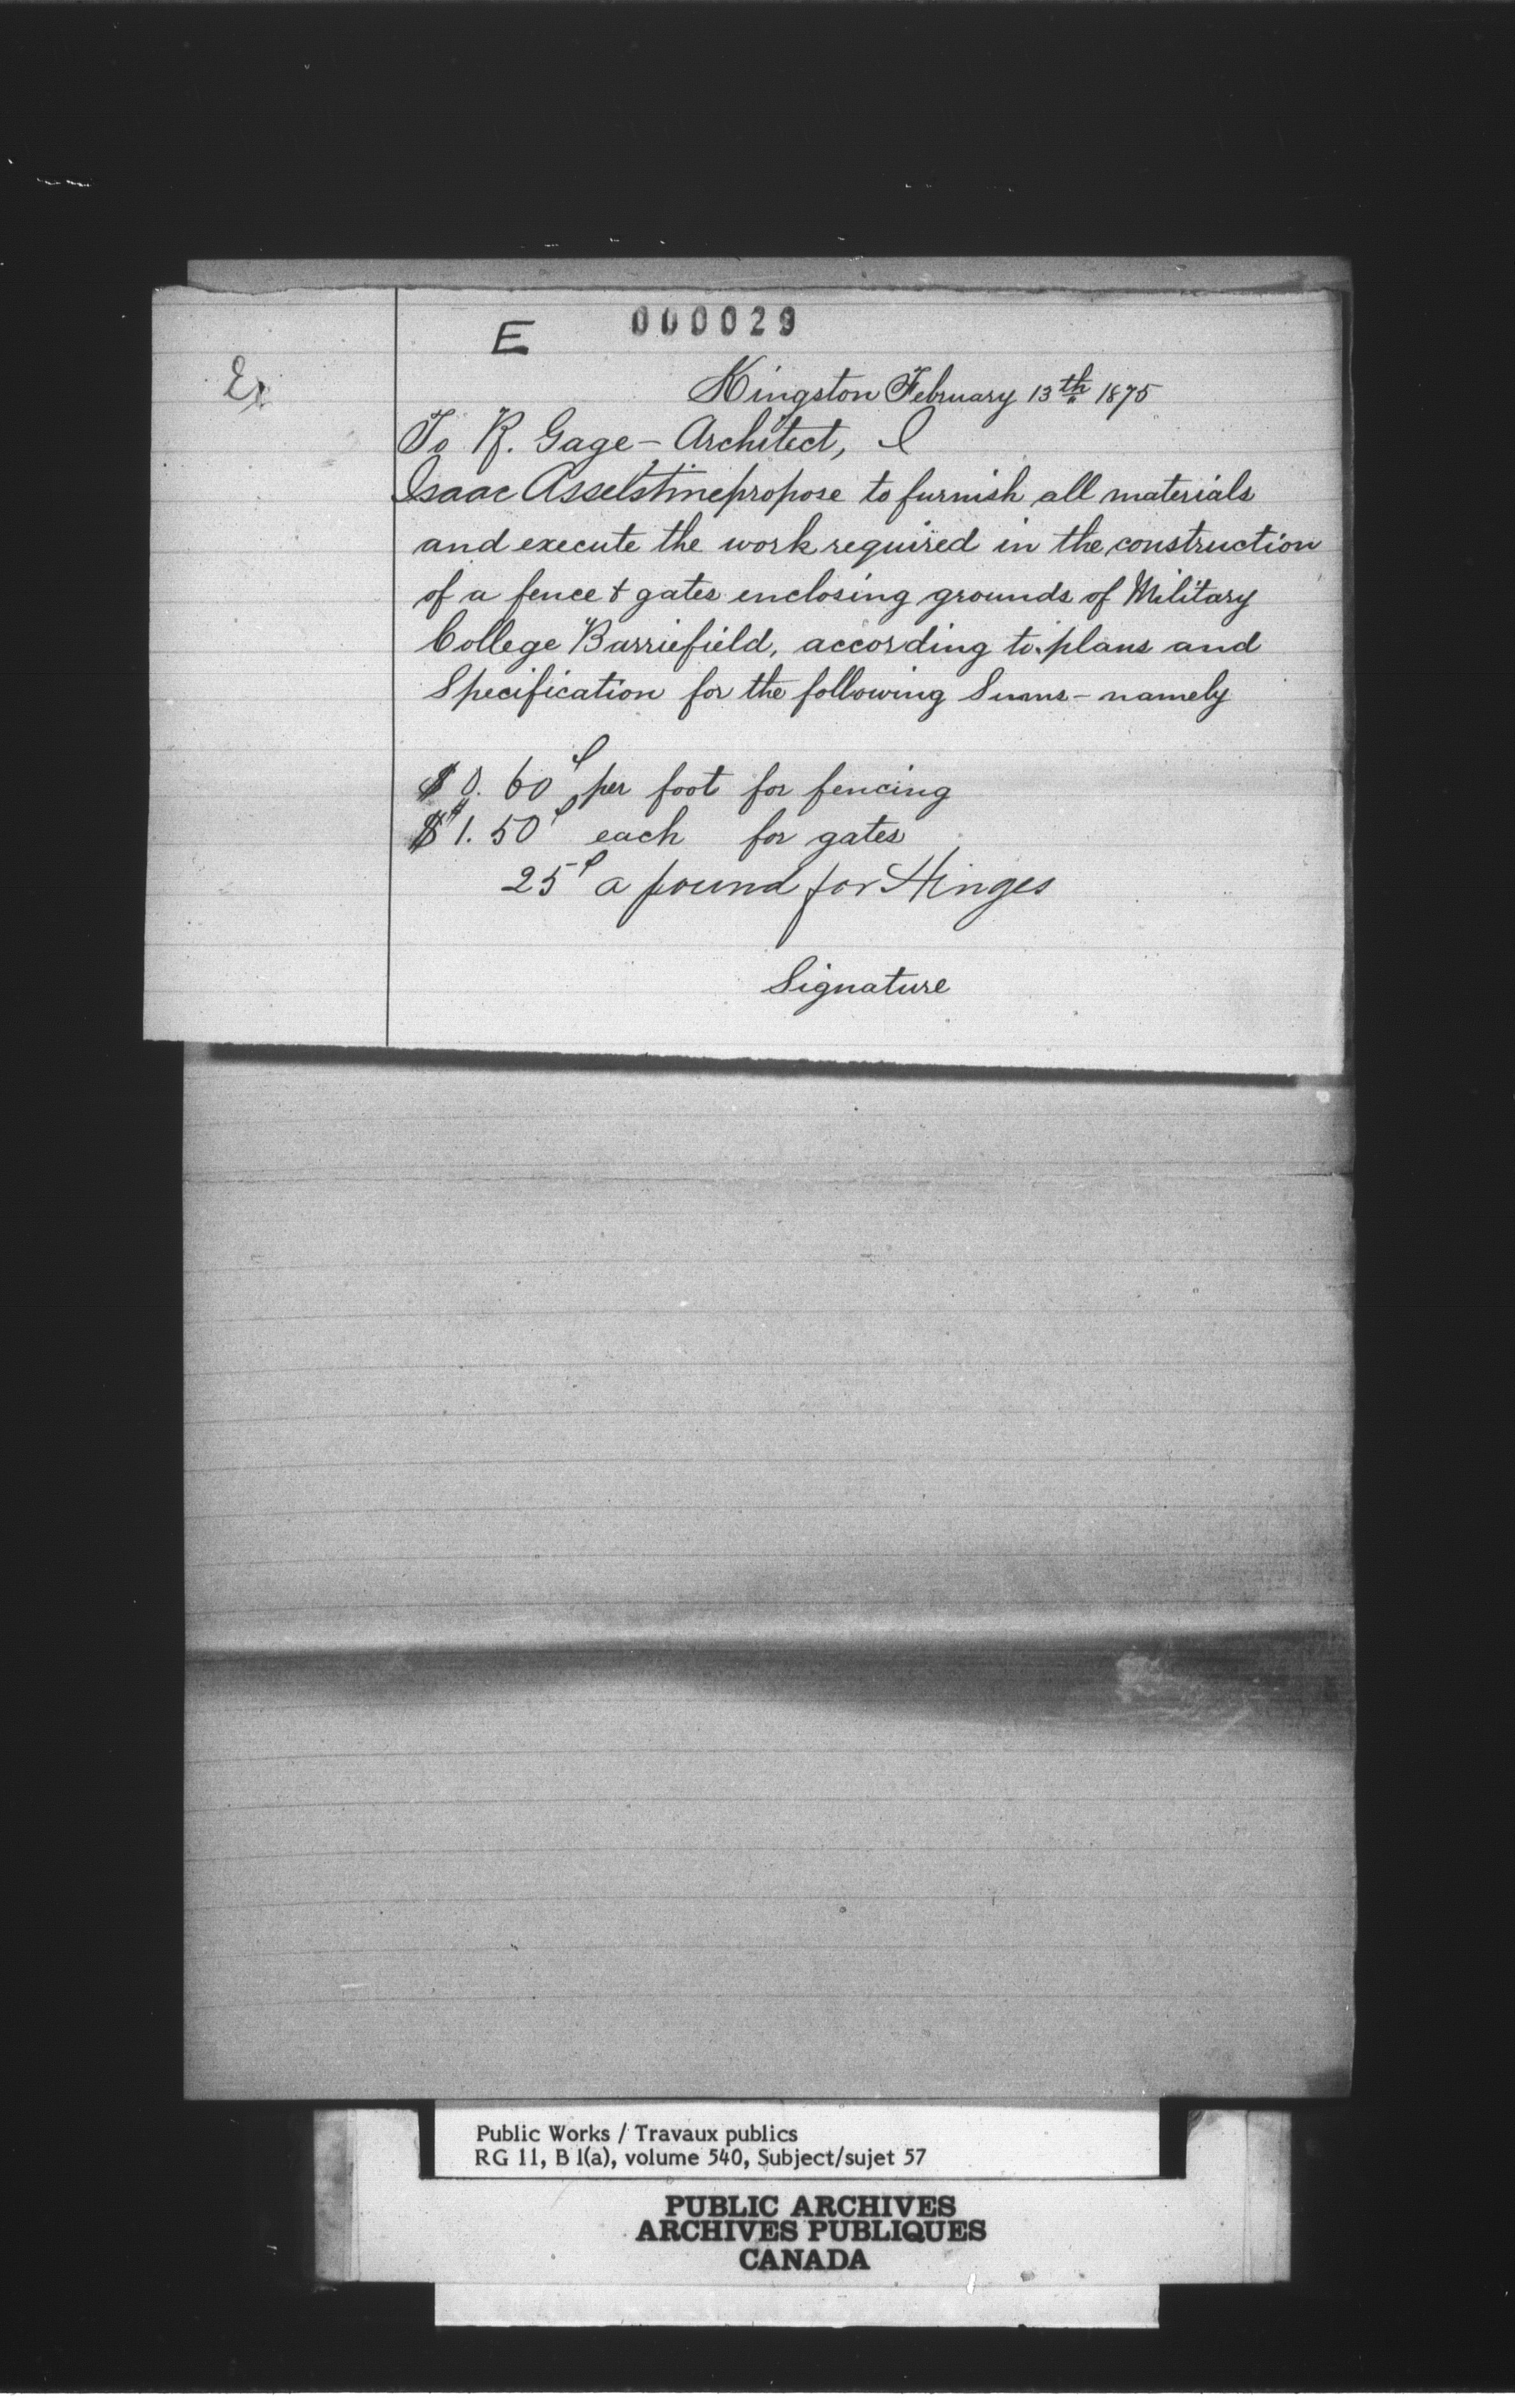 E 000029
Ex
Kingston February 13th 1875
To R. Gage - Architect, I
Isaac Asselstine propose to furnish all materials
and execute the work required in the construction
of a fence & gates enclosing grounds of Military
College Barriefield, according to plans and
Specification for the following Sums - namely
$0.60c per foot for fencing
$1.50c each for gates
25c a pound for Hinges
Signature
Public Works / Travaux publics
RG 11, B 1(a), volume 540, Subject/sujet 57
PUBLIC ARCHIVES
ARCHIVES PUBLIQUES
CANADA